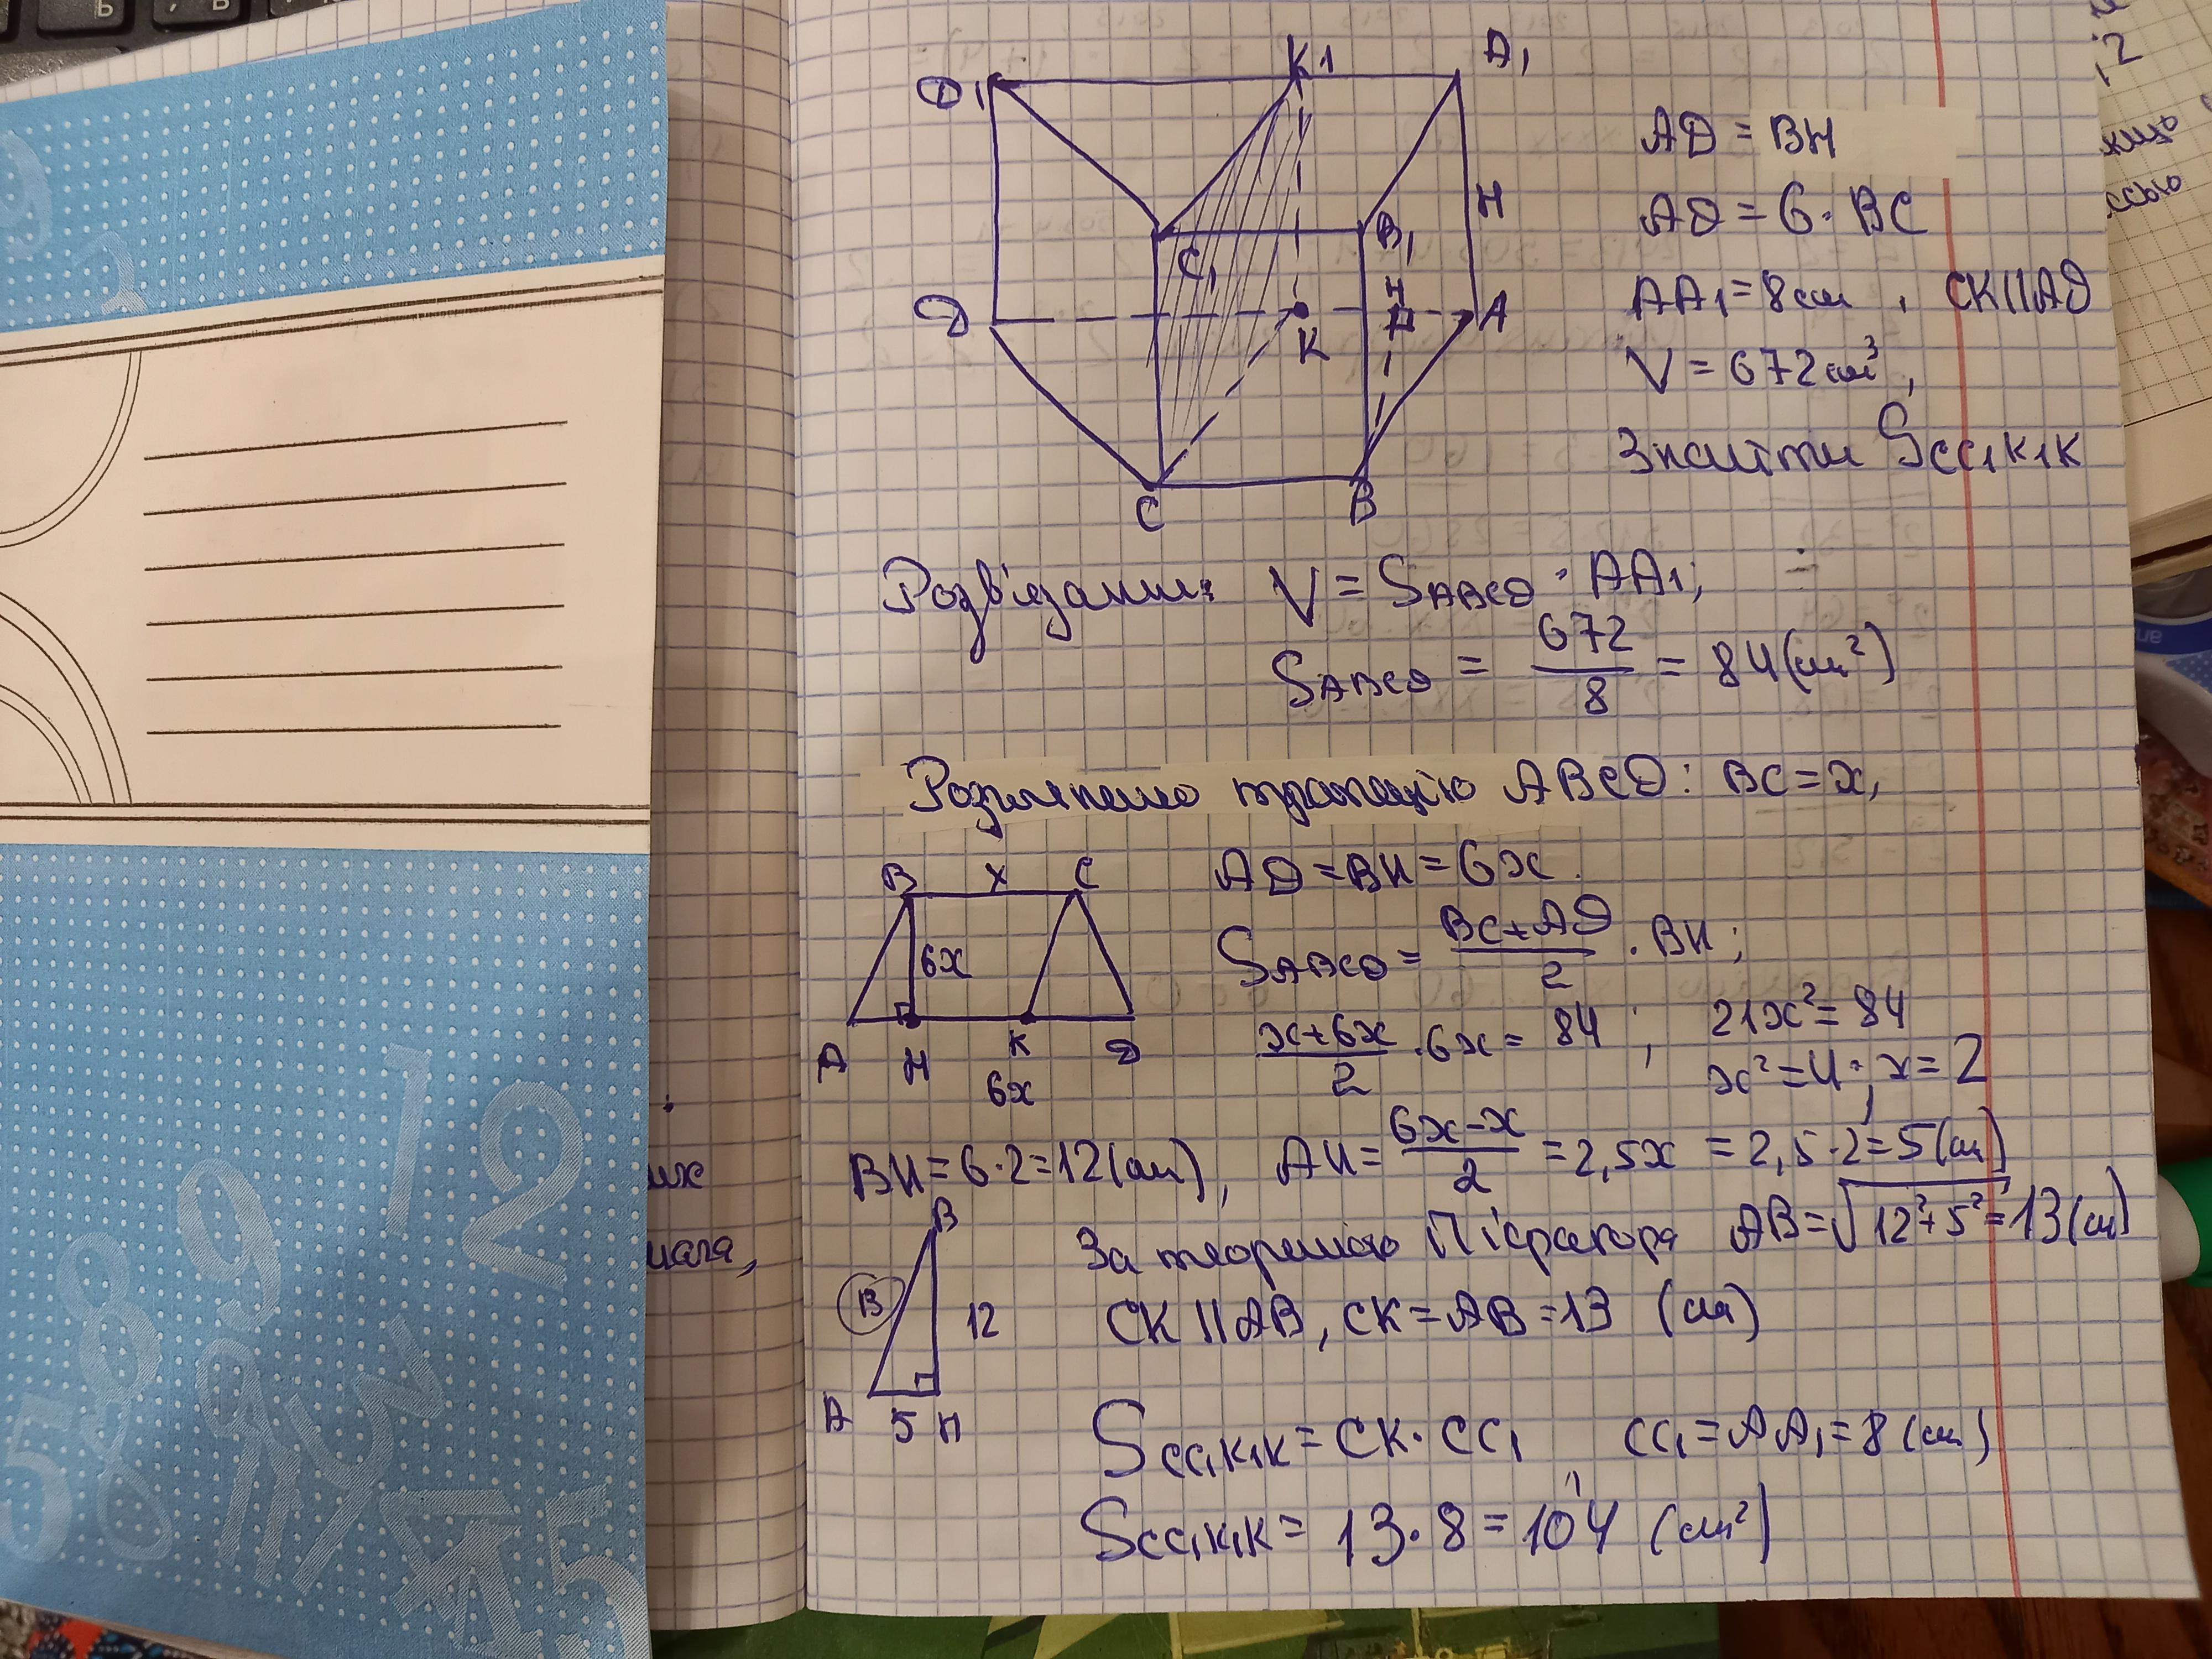 D1 K1 A1
AD = BH
H
AD = 6 · BC
C1 B1
AA1 = 8 см , CK || AD
D K H A
V = 672 см³,
Знайти SCC1K1K
C B
Розв'язання: V = SABCD · AA1;
SABCD = 672/8 = 84 (см²)
Розглянемо трапецію ABCD: BC = x,
B x C
AD = BH = 6x.
6x
SABCD = (BC + AD)/2 · BH;
A H K D
6x
(x + 6x)/2 · 6x = 84 ; 21x² = 84
x² = 4; x = 2
BH = 6 · 2 = 12 (см), AH = (6x − x)/2 = 2,5x = 2,5 · 2 = 5 (см)
За теоремою Піфагора AB = √12² + 5² = 13 (см)
B
13 12
A 5 H
CK || AB, CK = AB = 13 (см)
SCC1K1K = CK · CC1 CC1 = AA1 = 8 (см)
SCC1K1K = 13 · 8 = 104 (см²)